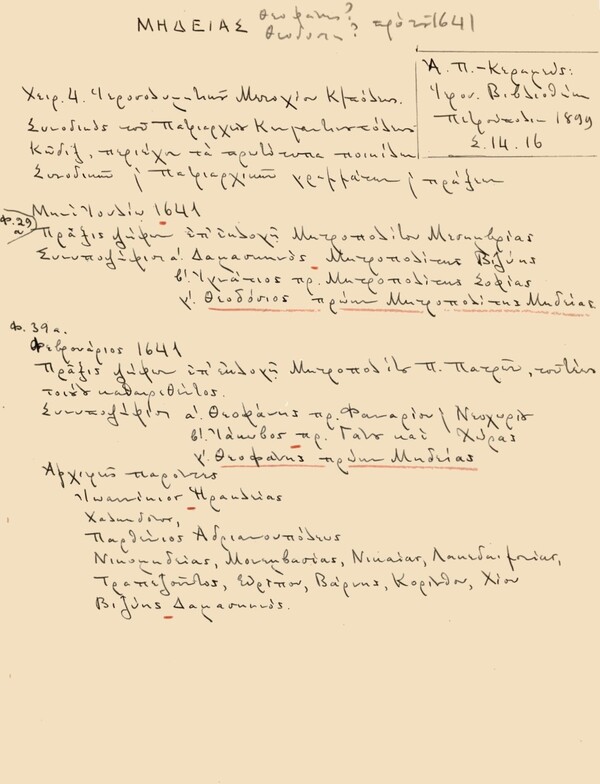 ΜΗΔΕΙΑΣ Θεοφάνης? πρὸ τοῦ 1641
Θεοδόσιος?
Ἀ. Π.-Κεραμεύς:
Ἱεροσ. Βιβλιοθήκη
Πετρούπολις 1899
Σ. 14. 16
Χειρ. 4. Ἱεροσολυμιτικοῦ Μετοχίου Κ/πόλεως.
Συνοδικὸς τοῦ Πατριαρχείου Κωνσταντινουπόλεως
Κῶδιξ, περιέχων τὰ πρωτότυπα ποικίλων
Συνοδικῶν ἢ Πατριαρχικῶν γραμμάτων ἢ πράξεων
Μηνὶ Ἰουλίῳ 1641
Φ. 29 α
Πρᾶξις ἐπὶ ἐκλογῇ Μητροπολίτου Μεσημβρίας
Συνυπογράφουσι α! Δαμασκηνὸς Μητροπολίτης Βιζύης
β! Ἰγνάτιος πρ. Μητροπολίτης Σοφίας
γ! Θεοδόσιος πρώην Μητροπολίτης Μηδείας
Φ. 39 α.
Φεβρουάριος 1641
Πρᾶξις ἐπὶ ἐκλογῇ Μητροπολίτου Π. Πατρῶν, τοῦ
καθαιρεθέντος.
Συνυπογράφουσι α! Θεοφάνης πρ. Φαναρίου ἢ Νεοχωρίου
β! Ἰάκωβος πρ. Γάνου καὶ Χώρας
γ! Θεοφάνης πρώην Μηδείας
Ἀρχιερεῖς παρόντες
Ἰωαννίκιος Ἡρακλείας
Χαλκηδόνος,
Παρθένιος Ἀδριανουπόλεως
Νικομηδείας, Μονεμβασίας, Νικαίας, Λακεδαιμονίας,
Τραπεζοῦντος, Εὐρίπου, Βάρνης, Κορίνθου, Χίου
Βιζύης Δαμασκηνός.